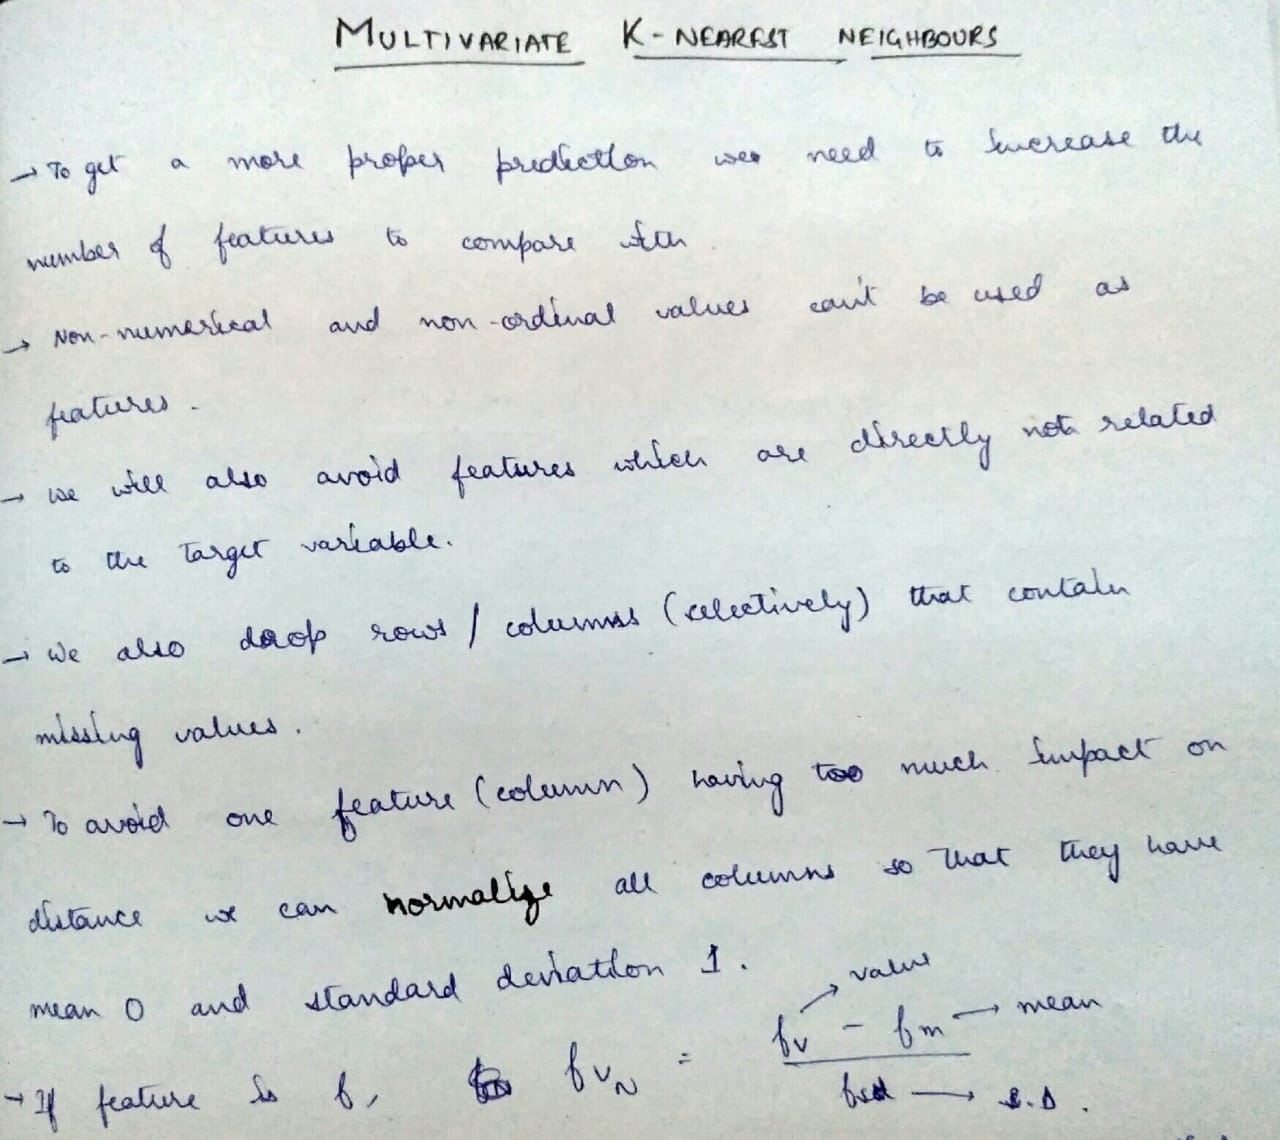 MULTIVARIATE K-NEAREST NEIGHBOURS
→ To get a more proper prediction we need to increase the
number of features to compare with
→ Non-numerical and non-ordinal values can't be used as
features.
→ We will also avoid features which are directly not related
to the target variable.
→ We also drop rows / columns (selectively) that contain
missing values.
→ To avoid one feature (column) having too much impact on
distance we can normalize all columns so that they have
mean 0 and standard deviation 1.
→ value
→ If feature is f, fvN = fv - fm → mean
fsd → S.D.